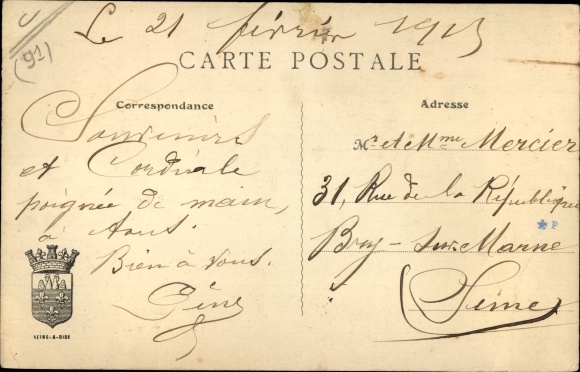 Le 21 février 1913
(91)
CARTE POSTALE
Correspondance
Souvenirs
et Cordiale
poignée de main,
à tous.
Bien à vous.
SEINE-&-OISE
Adresse
Mr et Mme Mercier
31, Rue de la République
Bry-sur-Marne
(Seine)